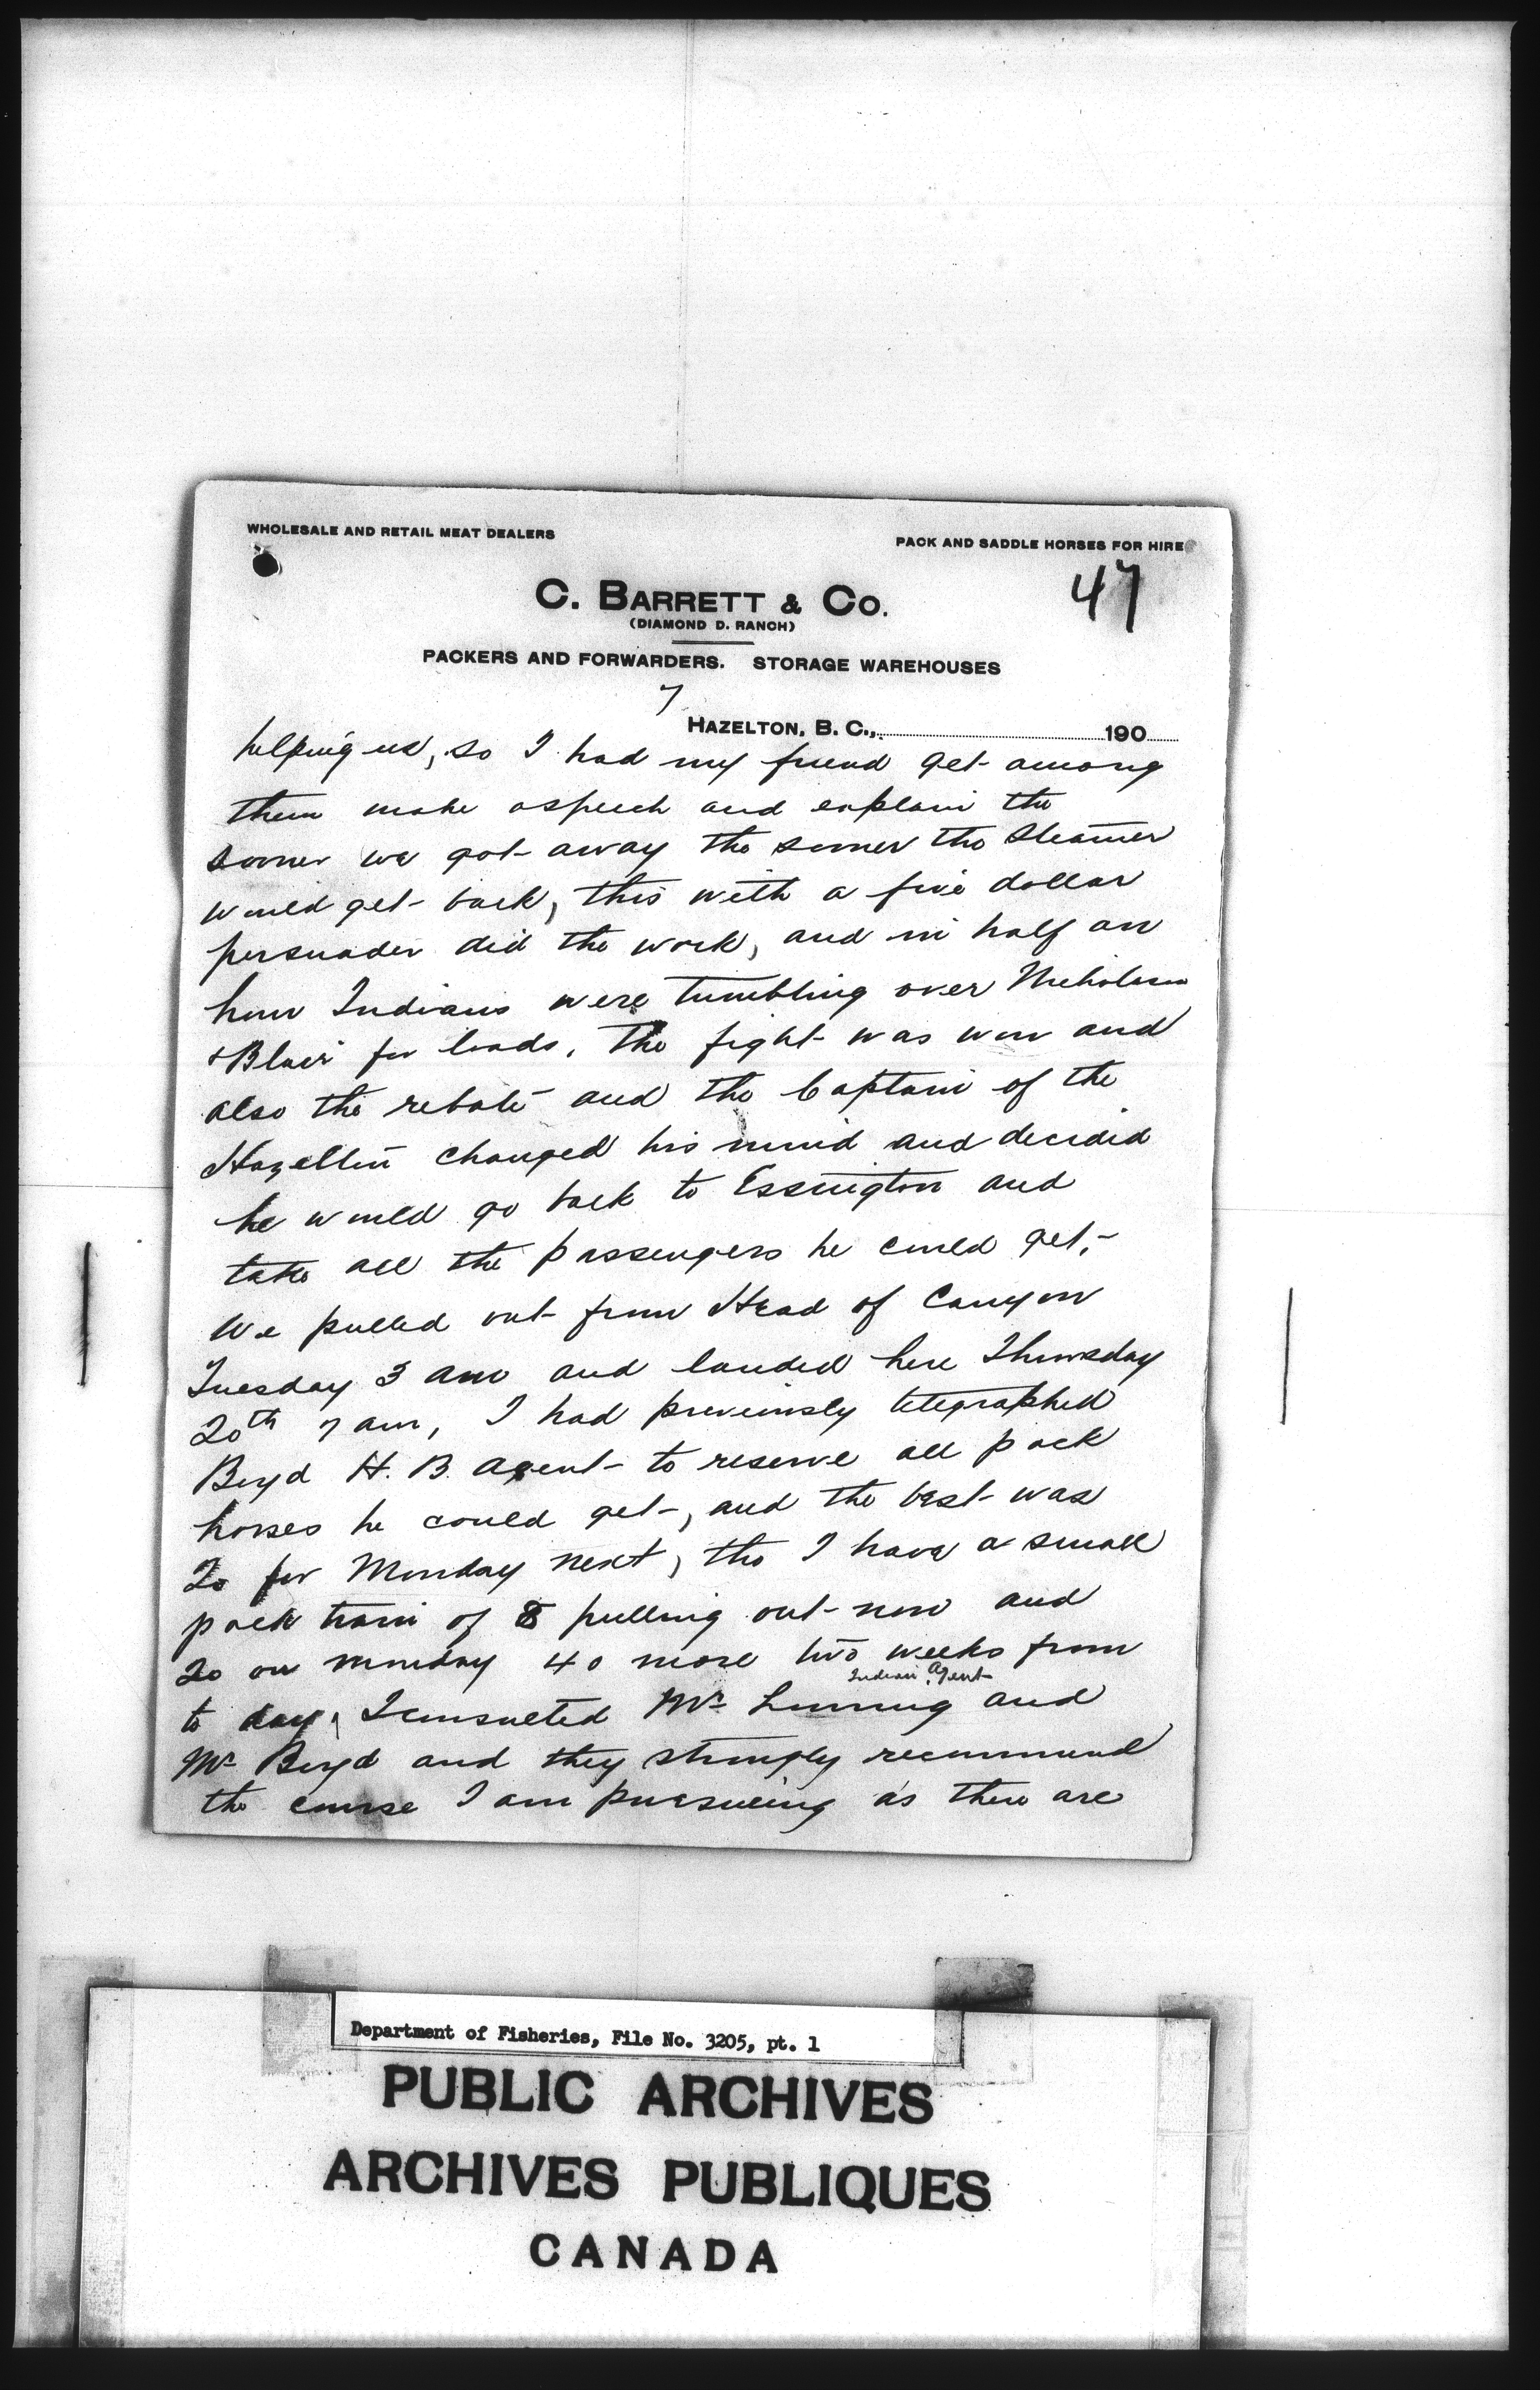 WHOLESALE AND RETAIL MEAT DEALERS
PACK AND SADDLE HORSES FOR HIRE
47
C. BARRETT & CO.
(DIAMOND D. RANCH)
PACKERS AND FORWARDERS. STORAGE WAREHOUSES
7
HAZELTON, B. C., 190
helping us, so I had my friend get among
them make a speech and explain the
sooner we got away the sooner the steamer
would get back, this with a five dollar
persuader did the work, and in half an
hour Indians were tumbling over Nicholson
& Blair for loads. The fight was won and
also the rebate and the Captain of the
Hazelton changed his mind and decided
he would go back to Essington and
take all the passengers he could get,
We pulled out from Head of Canyon
Tuesday 3 am and landed here Thursday
20th 7 am, I had previously telegraphed
Boyd H. B. Agent to reserve all pack
horses he could get, and the best was
20 for Monday next, tho I have a small
pack train of 8 pulling out now and
20 on Monday 40 more two weeks from
Indian Agent
to day, I consulted Mr Loring and
Mr Boyd and they strongly recommend
the course I am pursueing as there are
Department of Fisheries, File No. 3205, pt. 1
PUBLIC ARCHIVES
ARCHIVES PUBLIQUES
CANADA